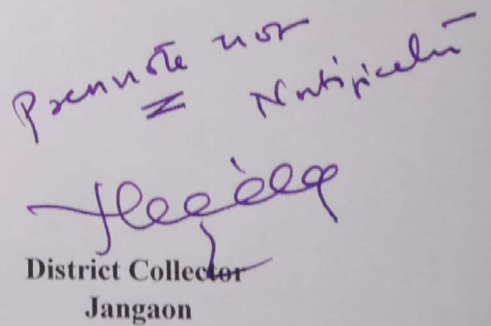 Pressnote not
Notification
District Collector
Jangaon